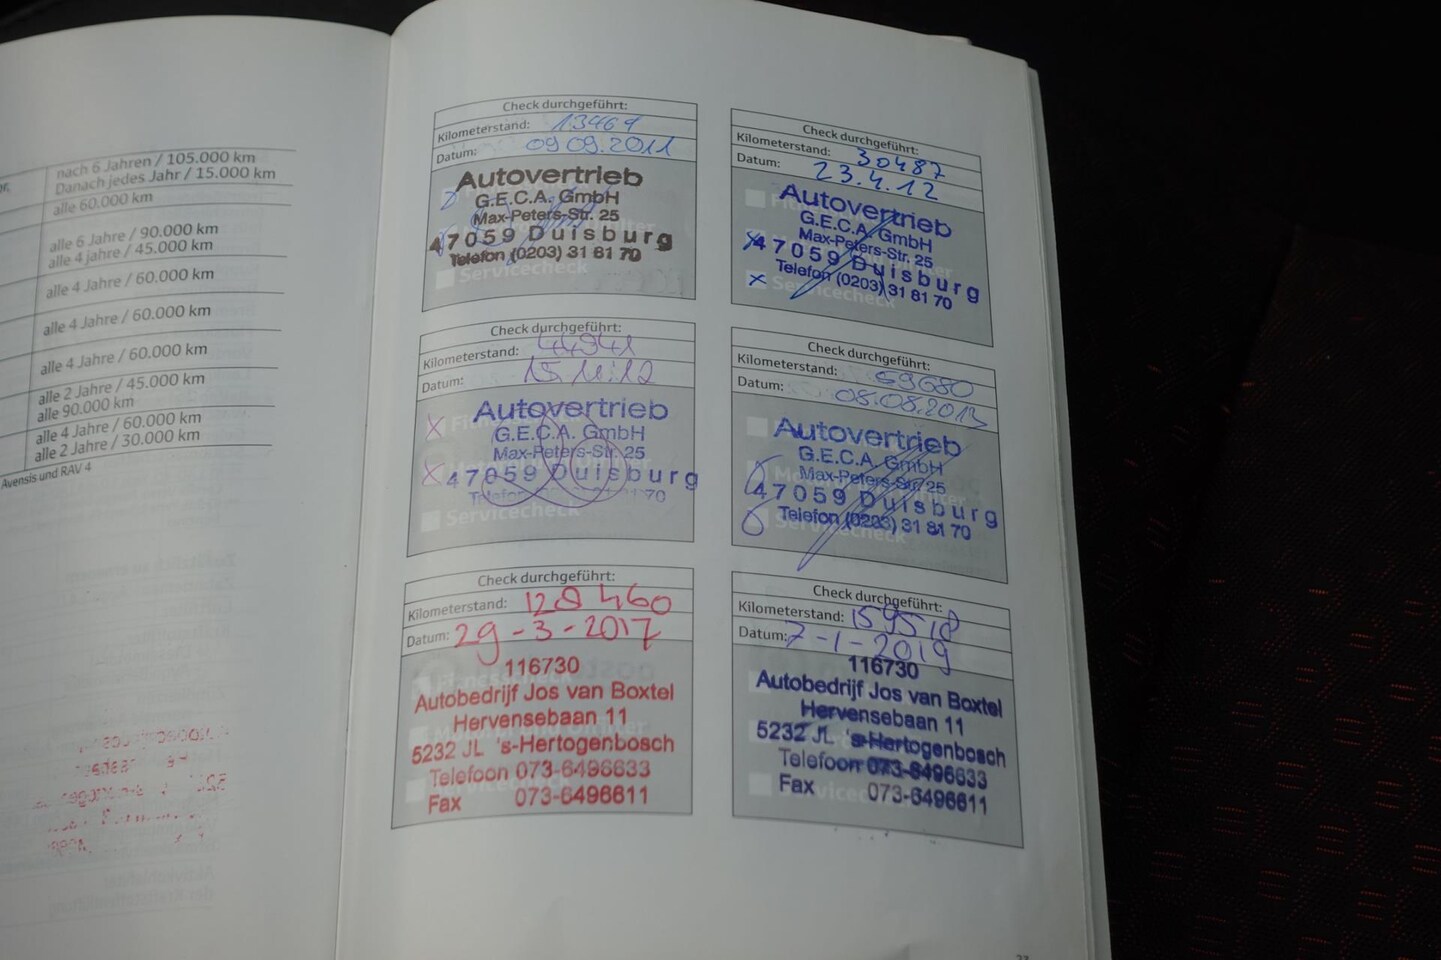 nach 6 Jahren / 105.000 km
Danach jedes Jahr / 15.000 km
alle 60.000 km
alle 6 Jahre / 90.000 km
alle 4 jahre / 45.000 km
alle 4 Jahre / 60.000 km
alle 4 Jahre / 60.000 km
alle 4 Jahre / 60.000 km
alle 2 Jahre / 45.000 km
alle 90.000 km
alle 4 Jahre / 60.000 km
alle 2 Jahre / 30.000 km
Avensis und RAV 4
Check durchgeführt:
Kilometerstand: 13469
Datum: 09.09.2011
Autovertrieb
G.E.C.A. GmbH
Max-Peters-Str. 25
47059 Duisburg
Telefon (0203) 31 81 70
Servicecheck
Check durchgeführt:
Kilometerstand: 30487
Datum: 23.4.12
Autovertrieb
G.E.C.A. GmbH
Max-Peters-Str. 25
47059 Duisburg
Telefon (0203) 31 81 70
Servicecheck
Check durchgeführt:
Kilometerstand: 44941
Datum: 15.11.12
Autovertrieb
G.E.C.A. GmbH
Max-Peters-Str. 25
47059 Duisburg
Telefon 70
Servicecheck
Check durchgeführt:
Kilometerstand: 59680
Datum: 08.08.2013
Autovertrieb
G.E.C.A. GmbH
Max-Peters-Str. 25
47059 Duisburg
Telefon (0203) 31 81 70
Servicecheck
Check durchgeführt:
Kilometerstand: 128460
Datum: 29-3-2017
116730
Autobedrijf Jos van Boxtel
Hervensebaan 11
5232 JL 's-Hertogenbosch
Telefoon 073-6496633
Fax 073-6496611
Check durchgeführt:
Kilometerstand: 159518
Datum: 7-1-2019
116730
Autobedrijf Jos van Boxtel
Hervensebaan 11
5232 JL 's-Hertogenbosch
Telefoon 073-6496633
Fax 073-6496611